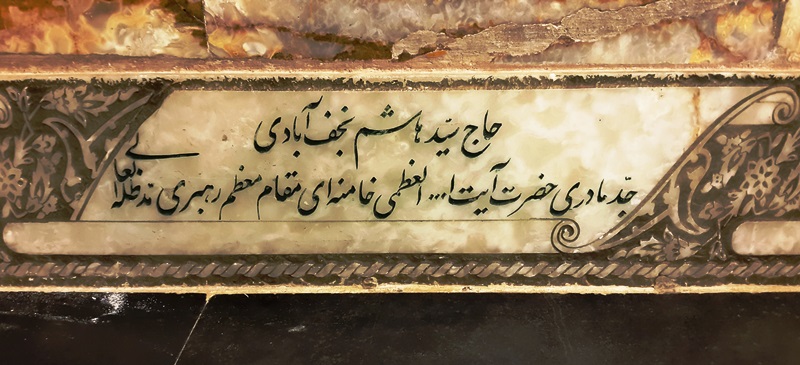 حاج سیّد هاشم نجف آبادی
جدّ مادری حضرت آیت ا... العظمی خامنه ای مقام معظم رهبری مدّظله العالی